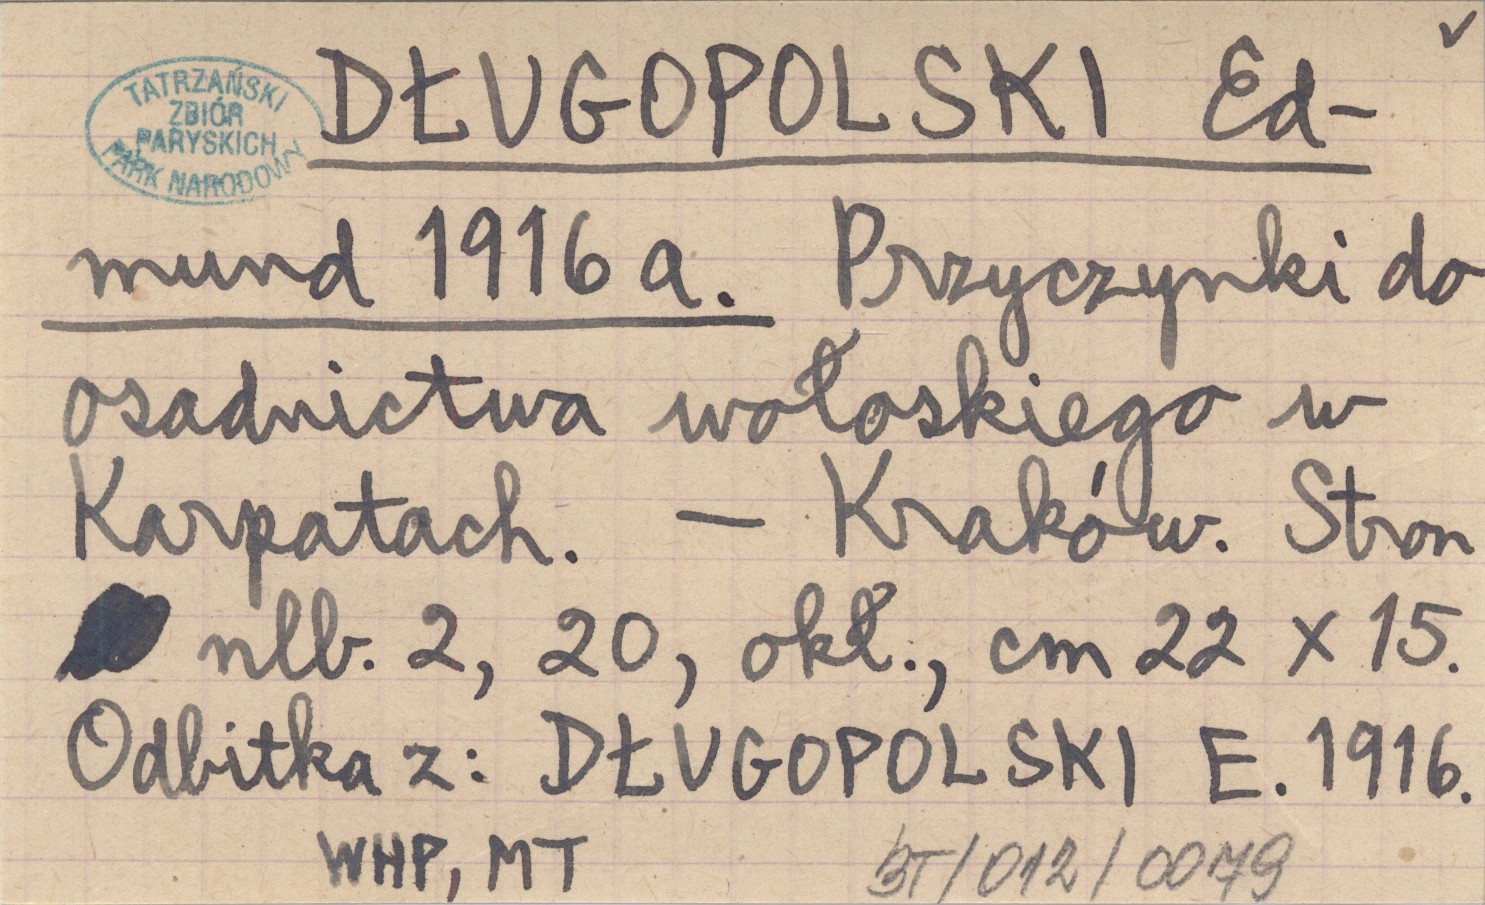 TATRZAŃSKI
ZBIÓR
PARYSKICH
PARK NARODOWY
DŁUGOPOLSKI Ed-
mund 1916 a. Przyczynki do
osadnictwa wołoskiego w
Karpatach. — Kraków. Stron
nlb. 2, 20, okł., cm 22 x 15.
Odbitka z: DŁUGOPOLSKI E. 1916.
WHP, MT
BT/012/0079